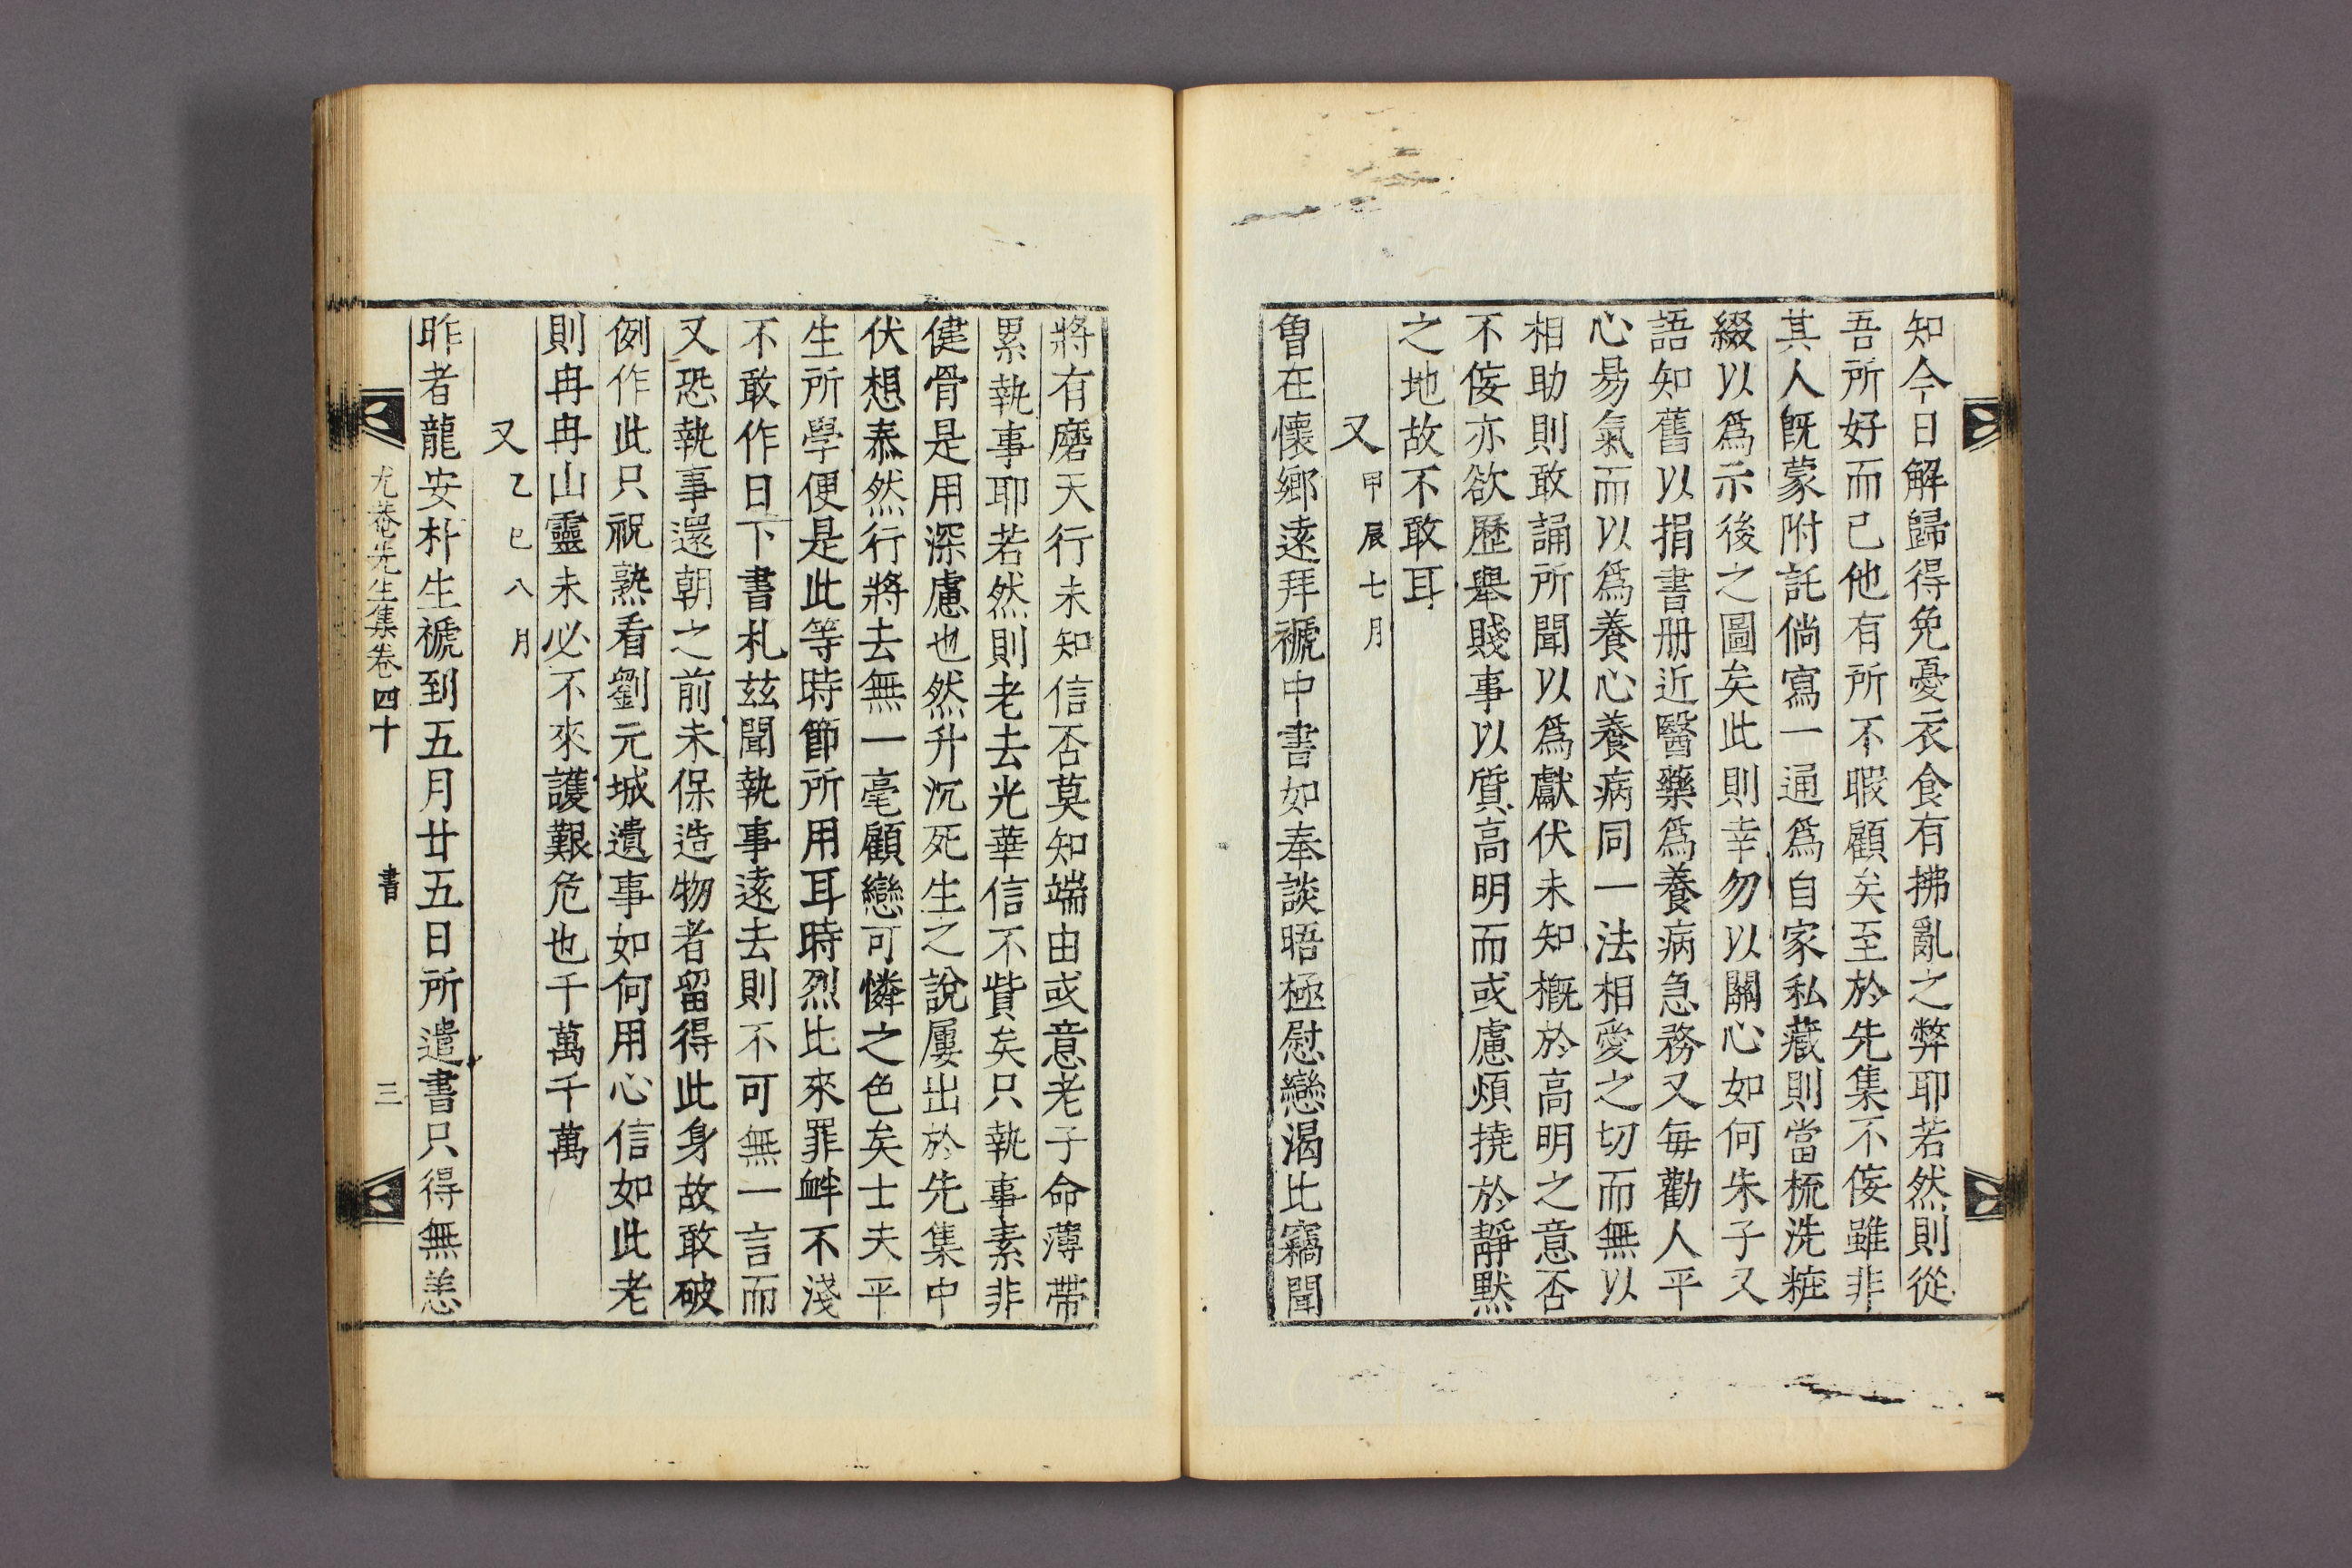 知今日解歸得免憂衣食有拂亂之弊耶若然則從
吾所好而已他有所不暇顧矣至於先集不侫雖非
其人旣蒙附託倘寫一通爲自家私藏則當梳洗粧
綴以爲示後之圖矣此則幸勿以關心如何朱子又
語知舊以捐書册近醫藥爲養病急務又每勸人平
心易氣而以爲養心養病同一法相愛之切而無以
相助則敢誦所聞以爲獻伏未知槪於高明之意否
不侫亦欲歷擧賤事以質高明而或慮煩撓於靜默
之地故不敢耳
又 甲辰七月
曾在懷鄕遠拜褫中書如奉談晤極慰戀渴比竊聞
將有磨天行未知信否莫知端由或意老子命薄帶
累執事耶若然則老去光華信不貲矣只執事素非
健骨是用深慮也然升沉死生之說屢出於先集中
伏想泰然行將去無一毫顧戀可憐之色矣士夫平
生所學便是此等時節所用耳時烈比來罪衅不淺
不敢作日下書札玆聞執事遠去則不可無一言而
又恐執事還朝之前未保造物者留得此身故敢破
例作此只祝熟看劉元城遺事如何用心信如此老
則冉冉山靈未必不來護艱危也千萬千萬
又 乙巳八月
昨者龍安朴生褫到五月廿五日所遣書只得無恙
尤菴先生集卷四十 書 三